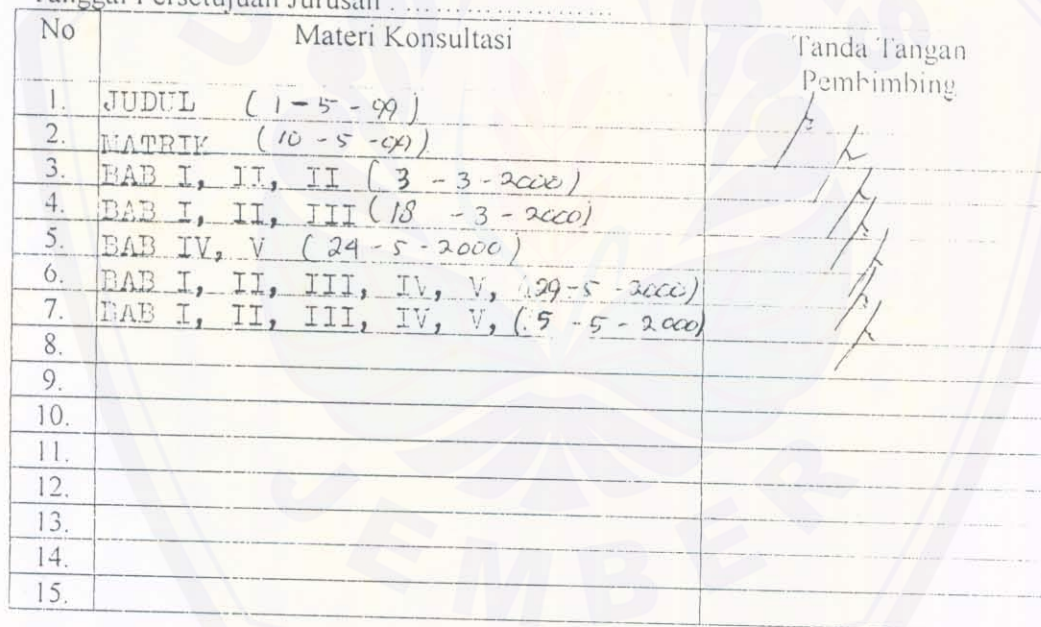 Tanggal Persetujuan Jurusan : ......................
No Materi Konsultasi Tanda Tangan Pembimbing
1. JUDUL (1-5-99)
2. MATRIK (10-5-99)
3. BAB I, II, II (3-3-2000)
4. BAB I, II, III (18-3-2000)
5. BAB IV, V (24-5-2000)
6. BAB I, II, III, IV, V, (29-5-2000)
7. BAB I, II, III, IV, V, (5-5-2000)
8.
9.
10.
11.
12.
13.
14.
15.
JEMBER